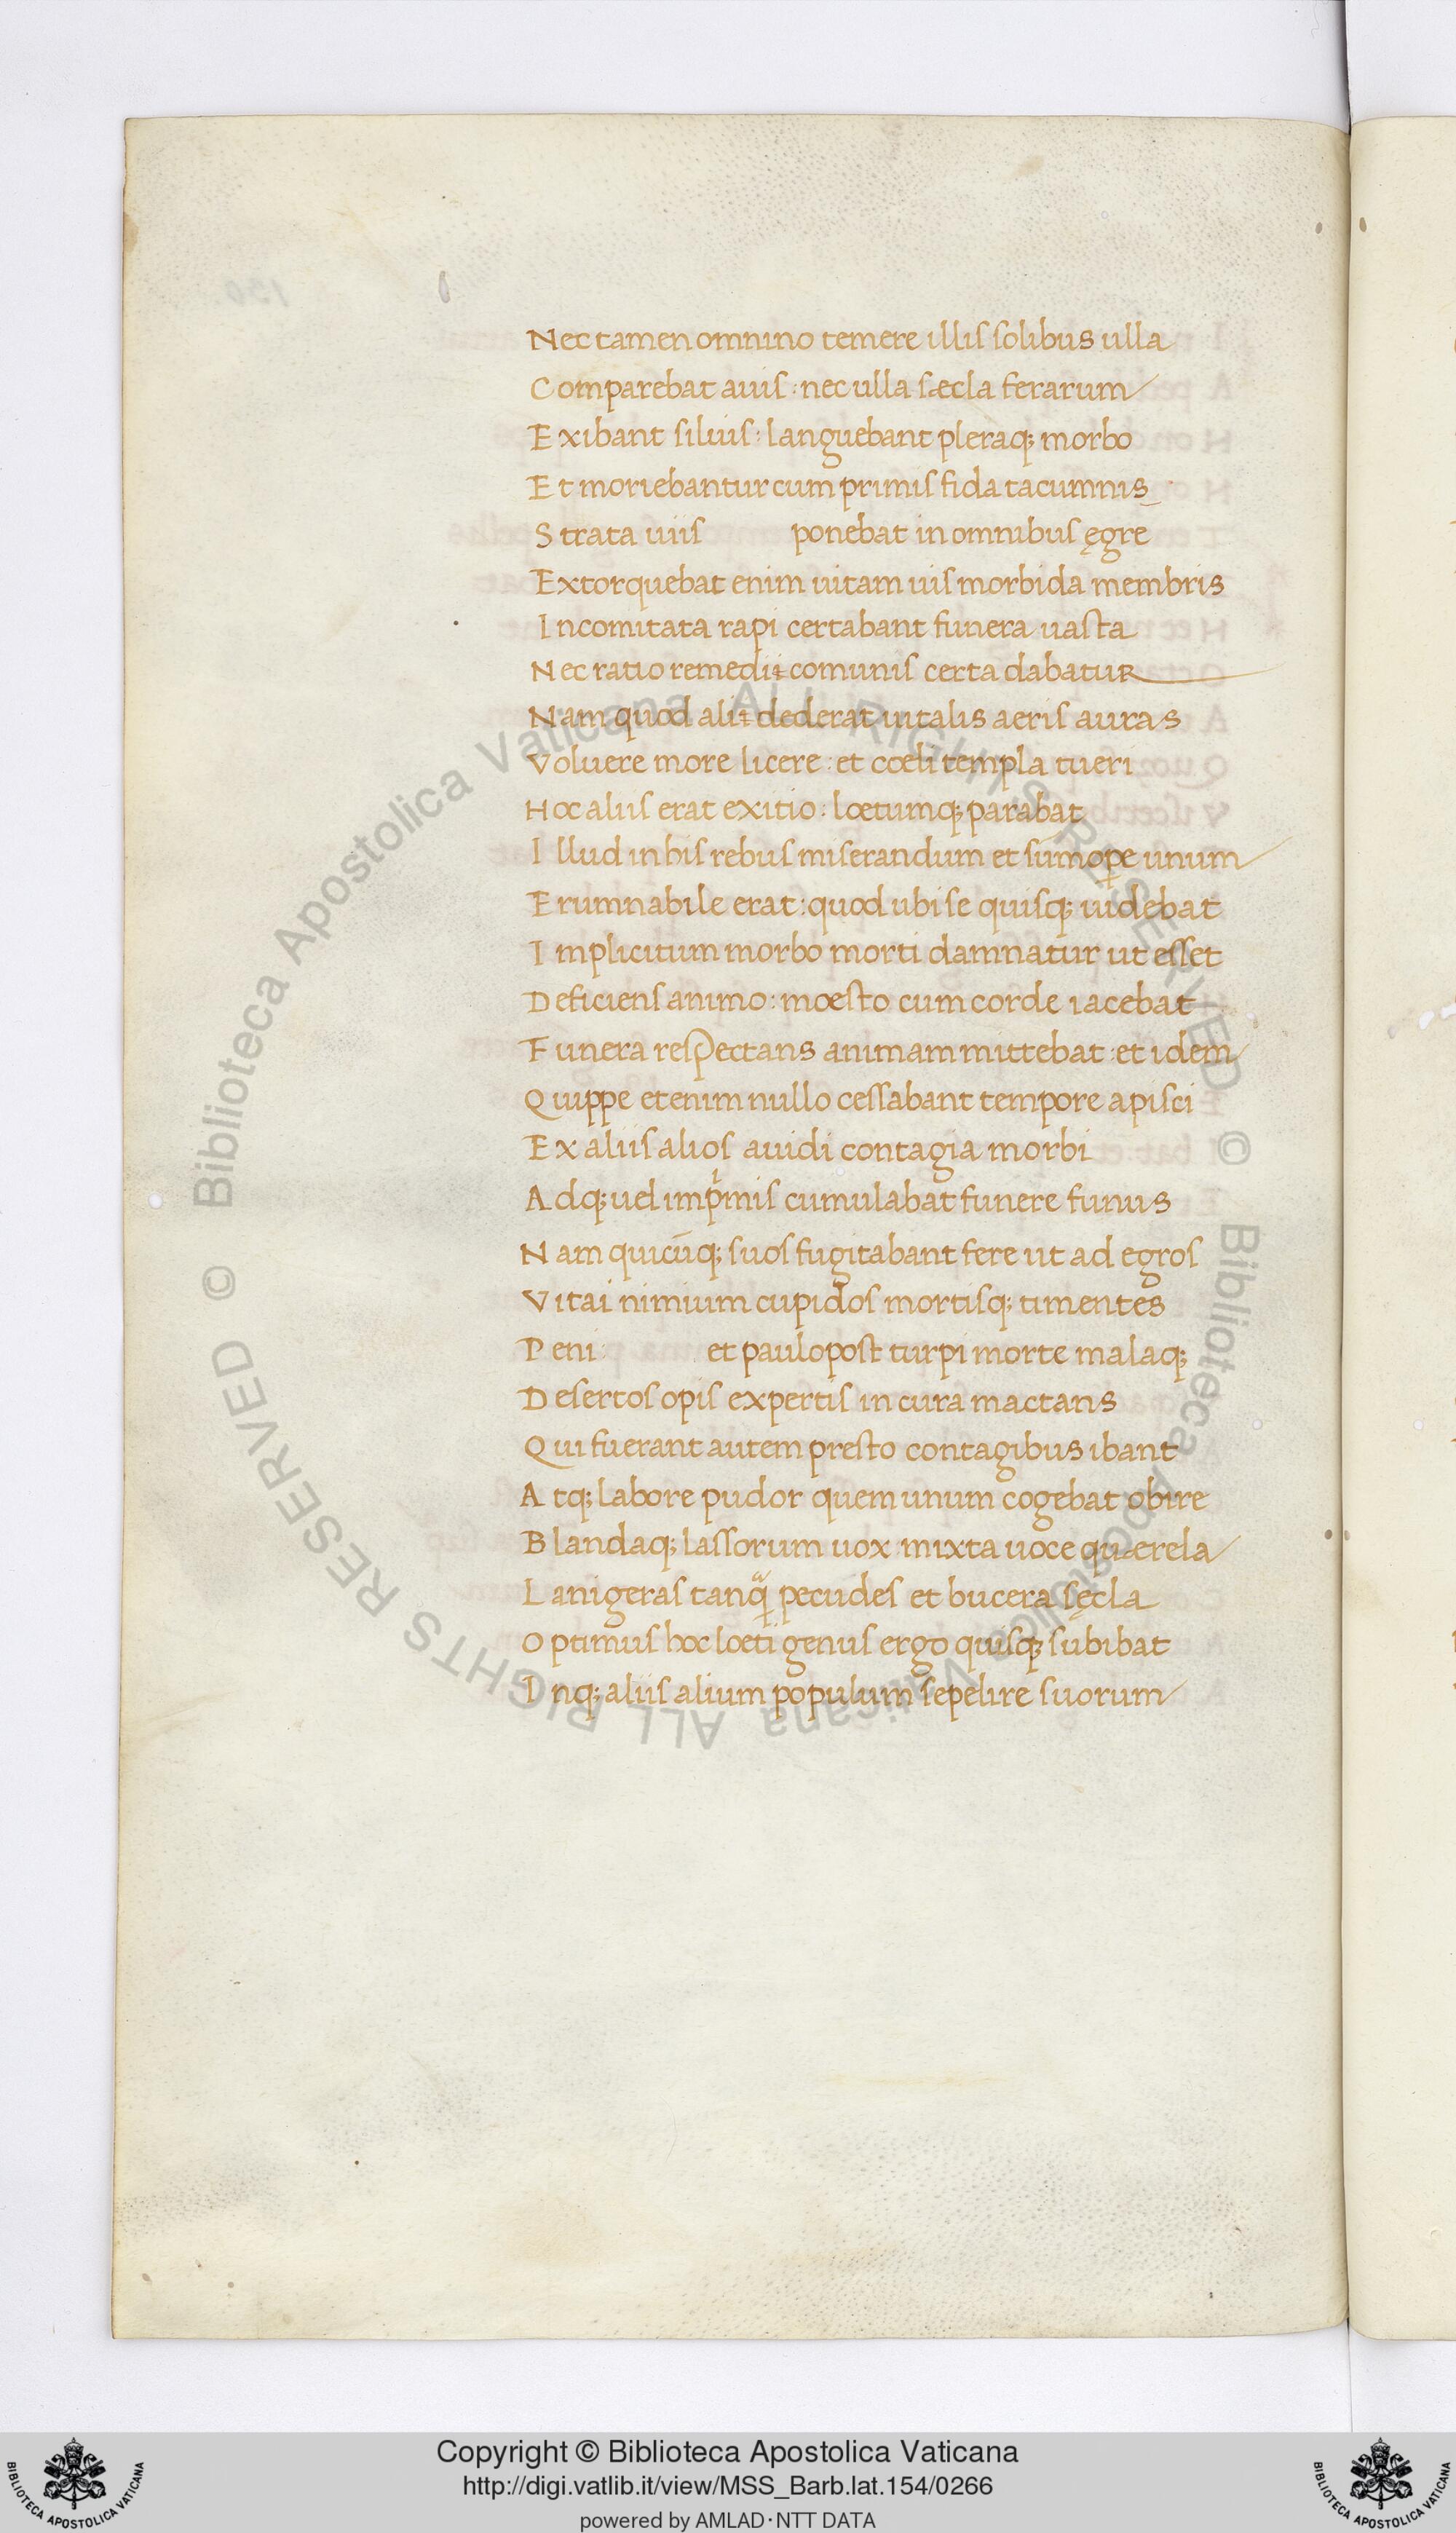 Nec tamen omnino temere illis solibus ulla
Comparebat auis: nec ulla sæcla ferarum
Exibant siluis: languebant pleraq; morbo
Et moriebantur cum primis fida tacumnis
Strata uiis ponebat in omnibus ęgre
Extorquebat enim uitam uis morbida membris
Incomitata rapi certabant funera uasta
Nec ratio remedii comunis certa dabatur
Nam quod ali dederat uitalis aeris auras
Voluere more licere: et cœli templa tueri
Hoc aliis erat exitio: lœtumq; parabat
Illud in his rebus miserandum et sumope unum
Erumnabile erat: quod ubi se quisq; uidebat
Implicitum morbo morti damnatur ut esset
Deficiens animo: mœsto cum corde iacebat
Funera respectans animam mittebat: et idem
Quippe etenim nullo cessabant tempore apisci
Ex aliis alios auidi contagia morbi
Adq; uel impmis cumulabat funere funus
Nam quicūq; suos fugitabant fere ut ad egros
Vitai nimium cupidos mortisq; timentes
Peni et paulopost turpi morte malaq;
Desertos opis expertis incura mactans
Qui fuerant autem presto contagibus ibant
Atq; labore pudor quem unum cogebat obire
Blandaq; lassorum uox mixta uoce quærela
Lanigeras tanq pecudes et bucera sęcla
Optimus hoc lœti genus ergo quisq; subibat
Inq; aliis alium populum sepelire suorum
© Biblioteca Apostolica Vaticana ALL RIGHTS RESERVED © Biblioteca Apostolica Vaticana ALL RIGHTS RESERVED
Copyright © Biblioteca Apostolica Vaticana
http://digi.vatlib.it/view/MSS_Barb.lat.154/0266
powered by AMLAD·NTT DATA
BIBLIOTECA APOSTOLICA VATICANA
BIBLIOTECA APOSTOLICA VATICANA